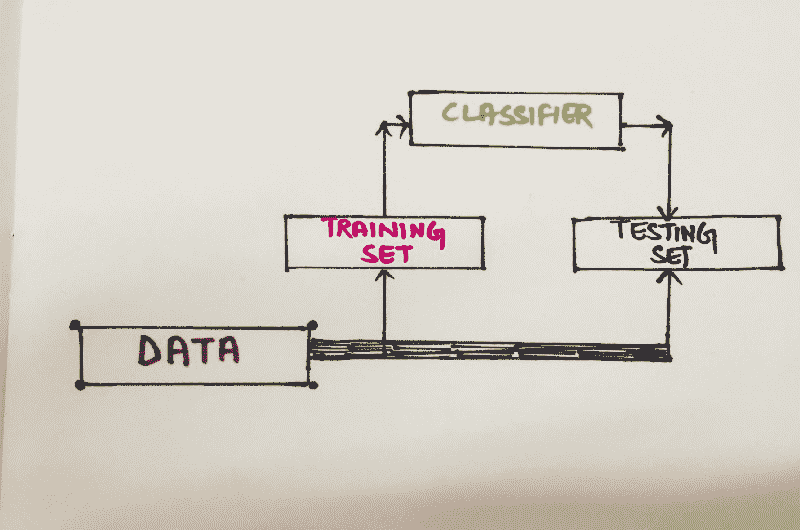 CLASSIFIER
TRAINING
SET
TESTING
SET
DATA